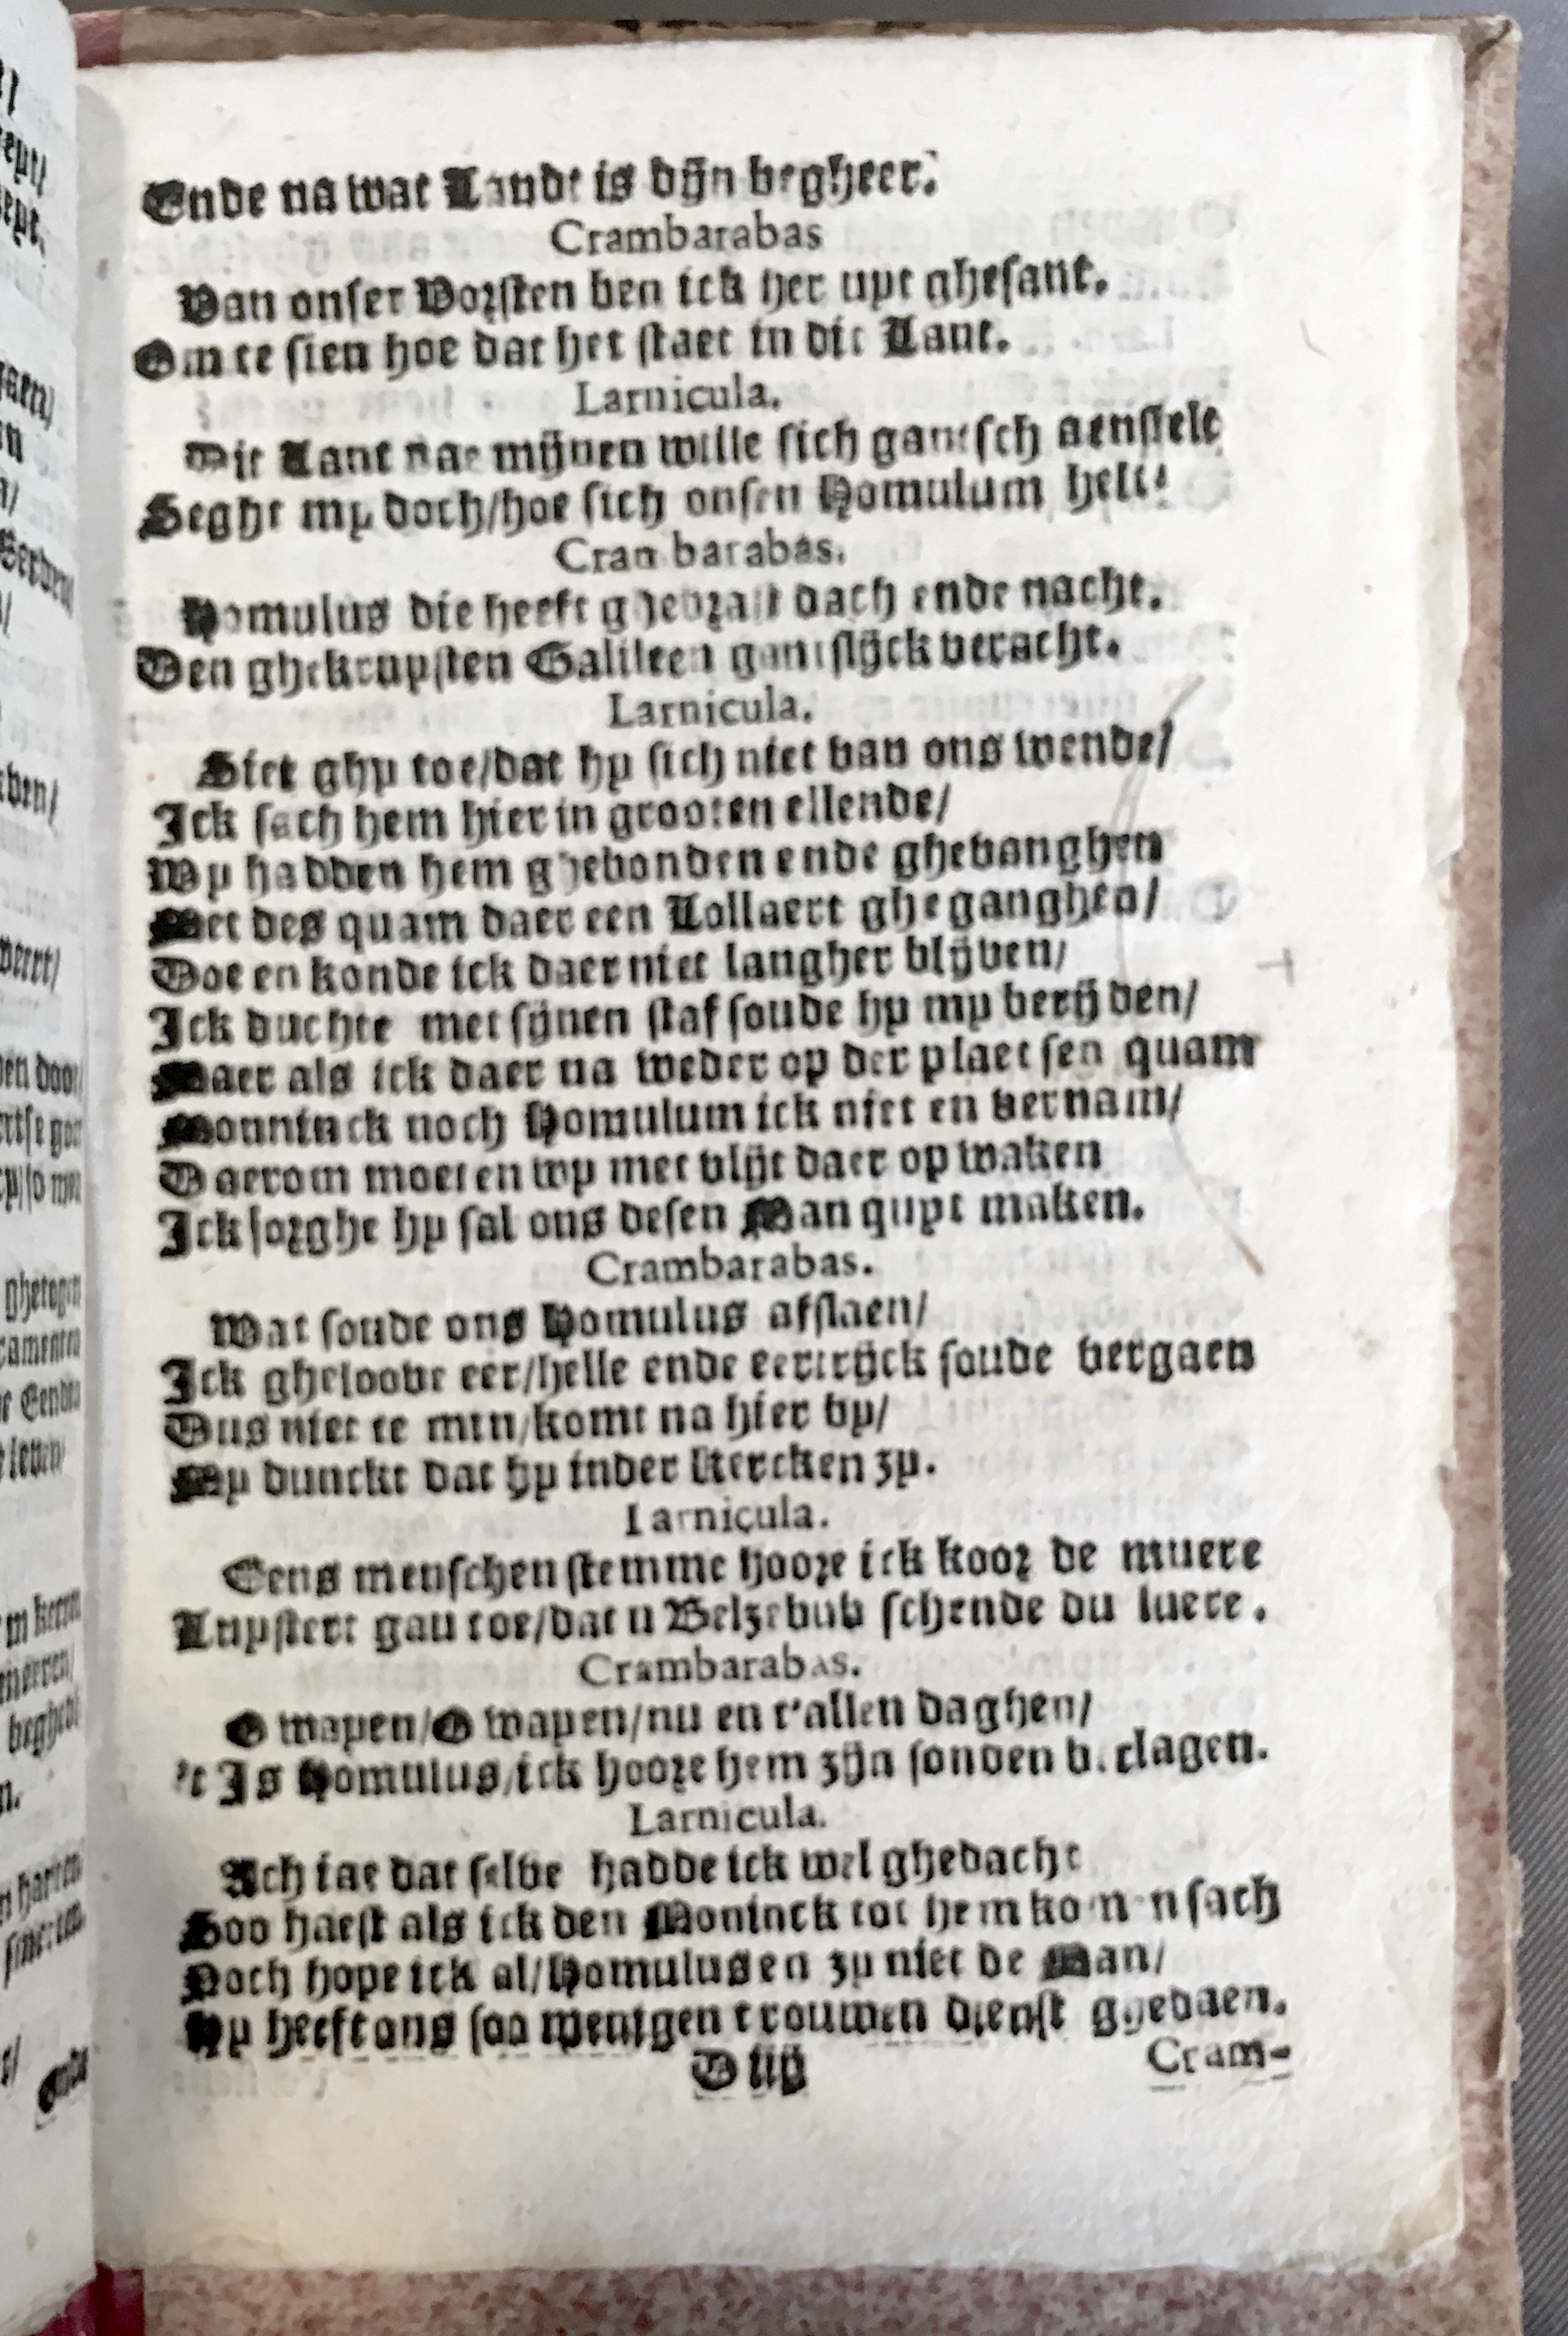 Ende na wat Landt is dijn begheer.
Crambarabas
Van onser Vorsten ben ick her uyt ghesant.
Om te sien hoe dat het staet in dit Lant.
Larnicula.
Dit Lant nae mijnen wille sich gantsch aenstelt
Seght my doch/hoe sich onsen Homulum helt?
Crambarabas.
Homulus die heeft ghebrast dach ende nacht.
Den ghekruysten Galileen gantslijck veracht.
Larnicula.
Siet ghy toe/dat hy sich niet van ons wende/
Ick sach hem hier in grooten ellende/
Wy hadden hem ghebonden ende ghevanghen
Met des quam daer een Lollaert gheganghen/
Doe en konde ick daer niet langher blijven/
Ick duchte met sijnen staf soude hy my verijden/
Maer als ick daer na weder op der plaetsen quam
Monninck noch Homulum ick niet en vernam/
Daerom moeten wy met vlijt daer op waken
Ick sorghe hy sal ons desen Man quyt maken.
Crambarabas.
Wat soude ons Homulus afslaen/
Ick gheloove eer/helle ende eertrijck soude vergaen
Dus niet te min/komt na hier by/
My dunckt dat hy inder Kercken zy.
Larnicula.
Eens menschen stemme hoore ick koor de muere
Luystert gau toe/dat u Belzebub schende du luere.
Crambarabas.
O wapen/O wapen/nu en t'allen daghen/
't Is Homulus/ick hoore hem zijn sonden b.clagen.
Larnicula.
Ach iae dat selve hadde ick wel ghedacht
Soo haest als ick den Moninck tot hem komen sach
Noch hope ick al/Homulus en zy niet de Man/
Hy heeft ons soo menigen trouwen dienst ghedaen.
D iij
Cram-